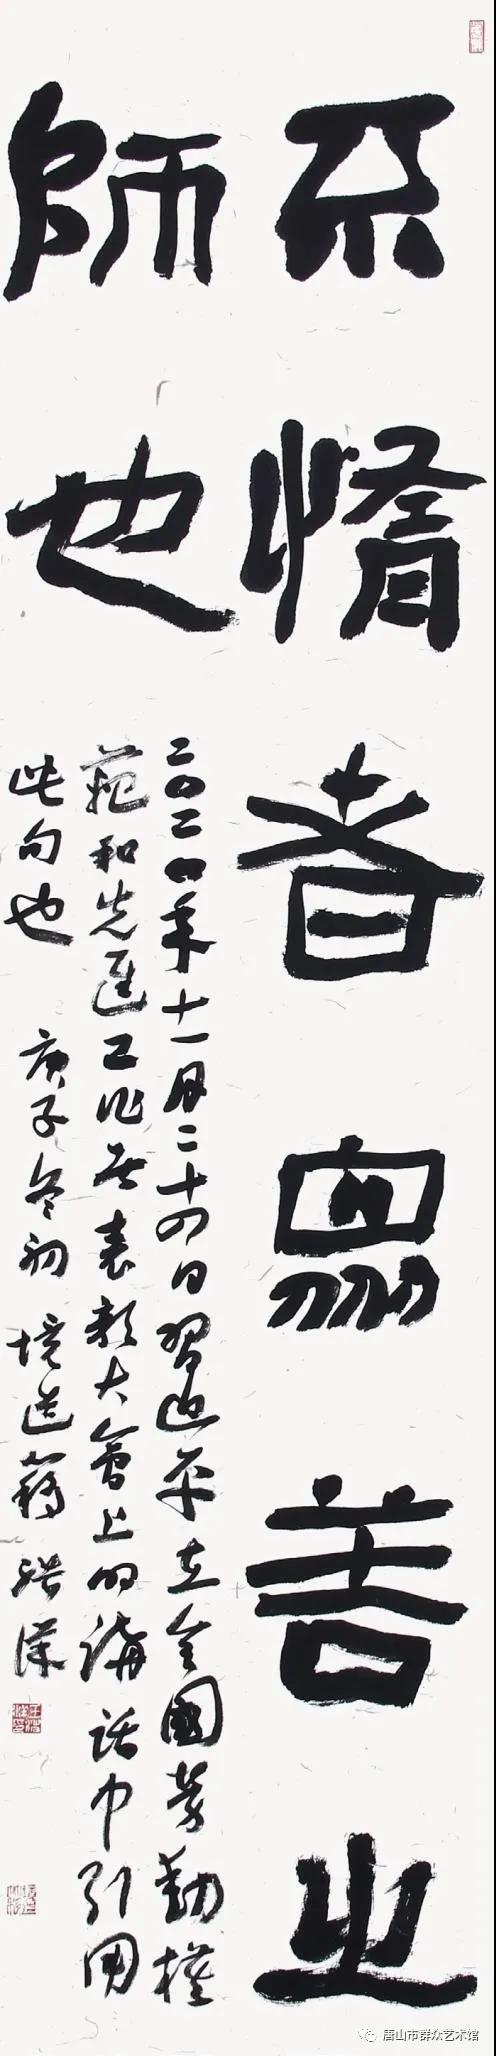 不惰者眾善之
師也
二〇二〇年十一月二十四日習近平在全國勞動模
範和先進工作者表彰大會上的講話中引用
此句也 庚子冬初
唐山市群众艺术馆